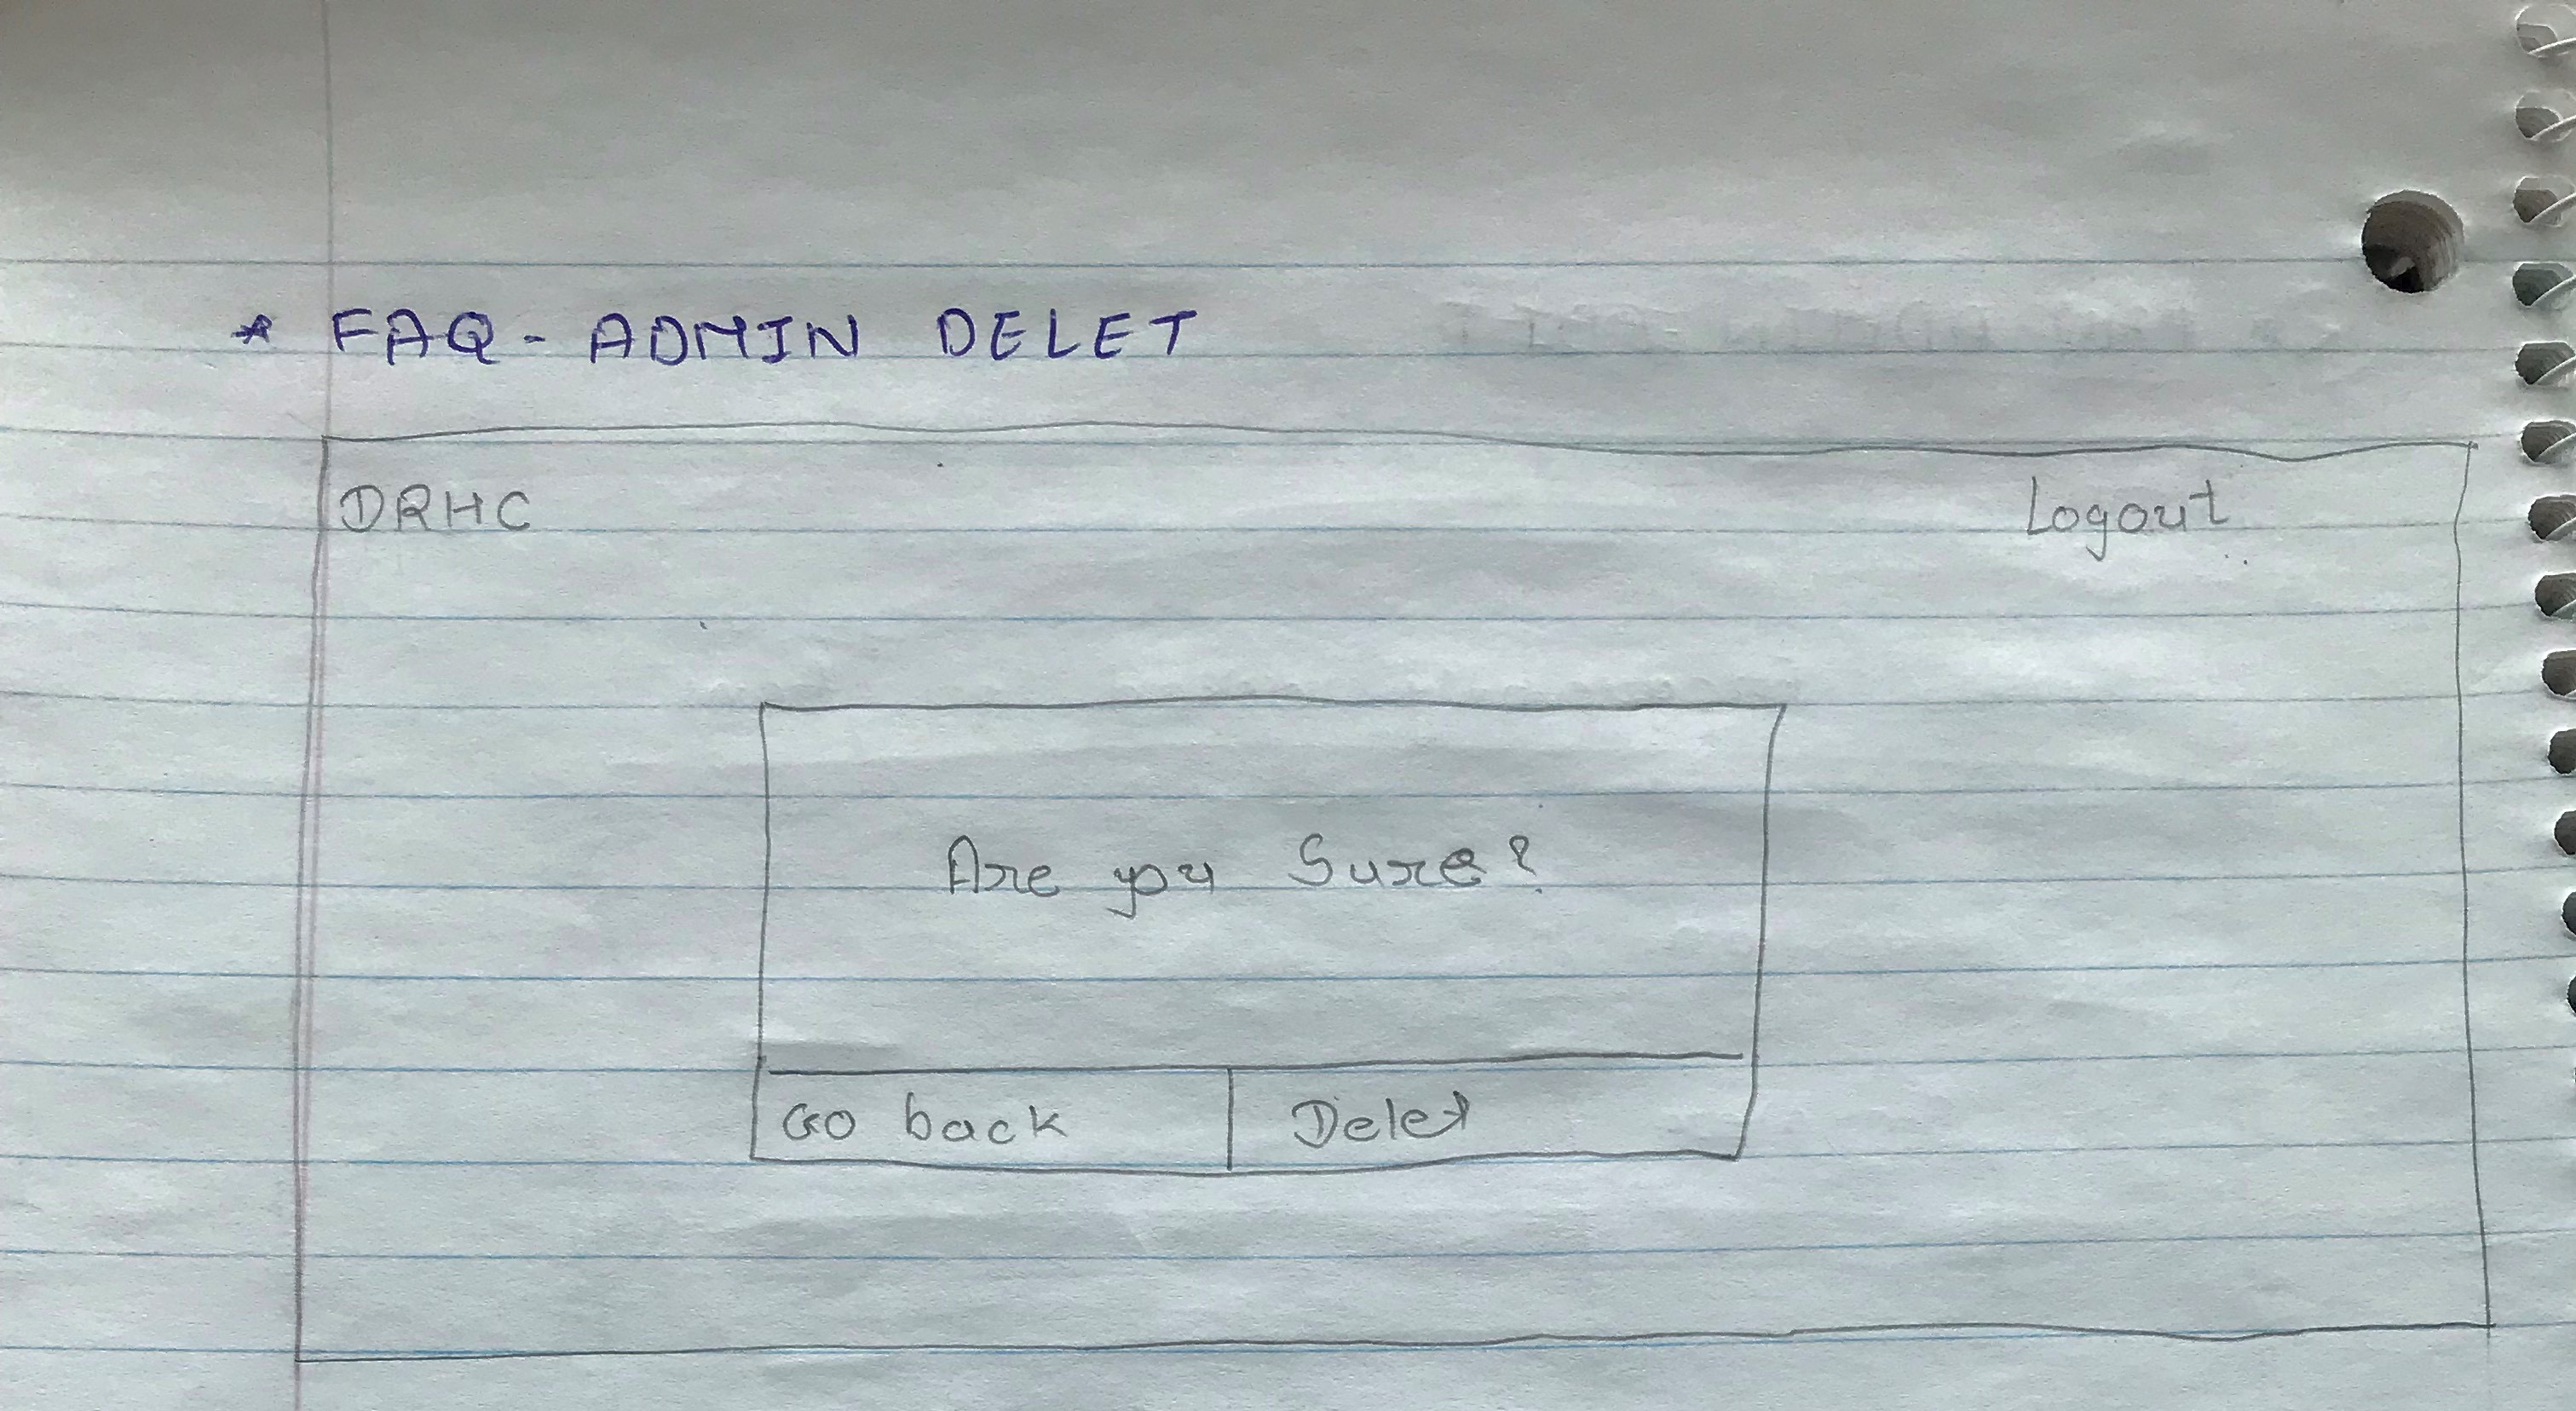 * FAQ - ADMIN DELET
DRHC Logout
Are you Sure?
Go back Delet